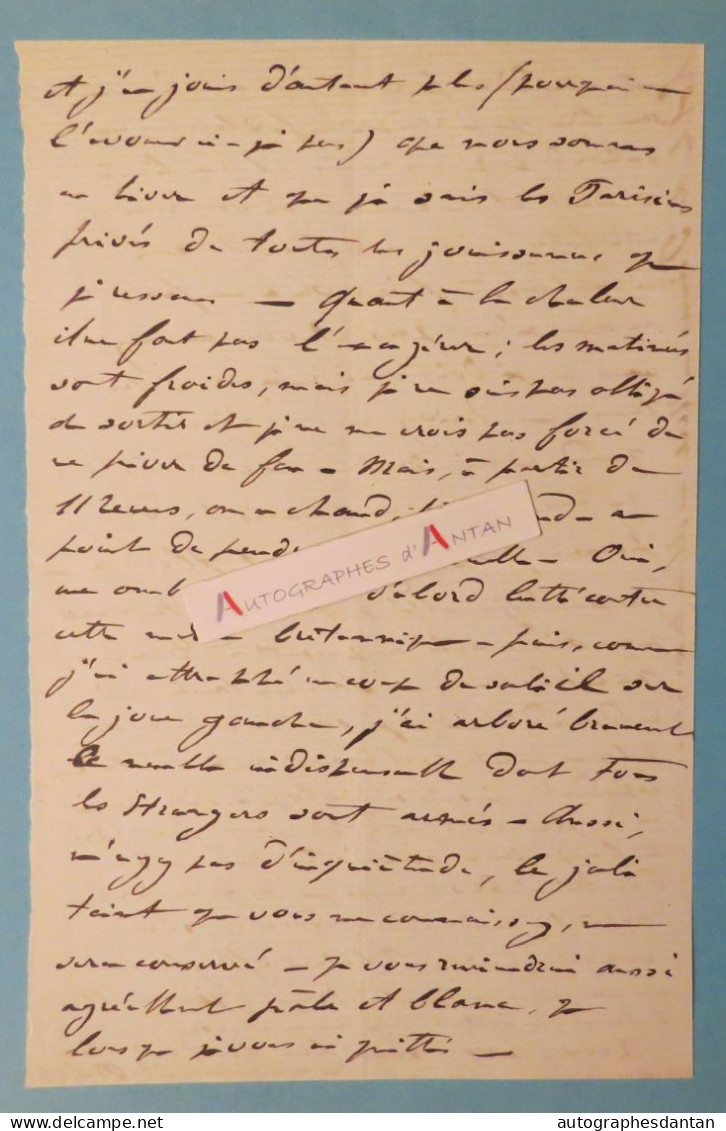 et j'en jouis d'autant plus (pourquoi ne
l'avouerai-je pas) que nous sommes
en hiver et que je sais les Parisiens
privés de toutes les jouissances que
je ressens — Quant à la chaleur
il ne faut pas l'exagérer ; les matinées
sont froides, mais je ne suis pas obligé
de sortir et je ne me crois pas forcé de
me priver de feu — Mais, à partir de
11 heures, on a chaud, au
point de Oui,
une omb d'abord lutté contre
cette mode britannique — puis, comme
j'ai attrapé un coup de soleil sur
la joue gauche, j'ai arboré bravement
le meuble indispensable dont tous
les étrangers sont armés — Aussi,
n'ayez pas d'inquiétude, le joli
teint que vous me connaissez, me
sera conservé — je vous reviendrai aussi
agréablement pâle et blanc, que
lorsque je vous ai quitté —
AUTOGRAPHES d'ANTAN
www.delcampe.net
autographesdantan